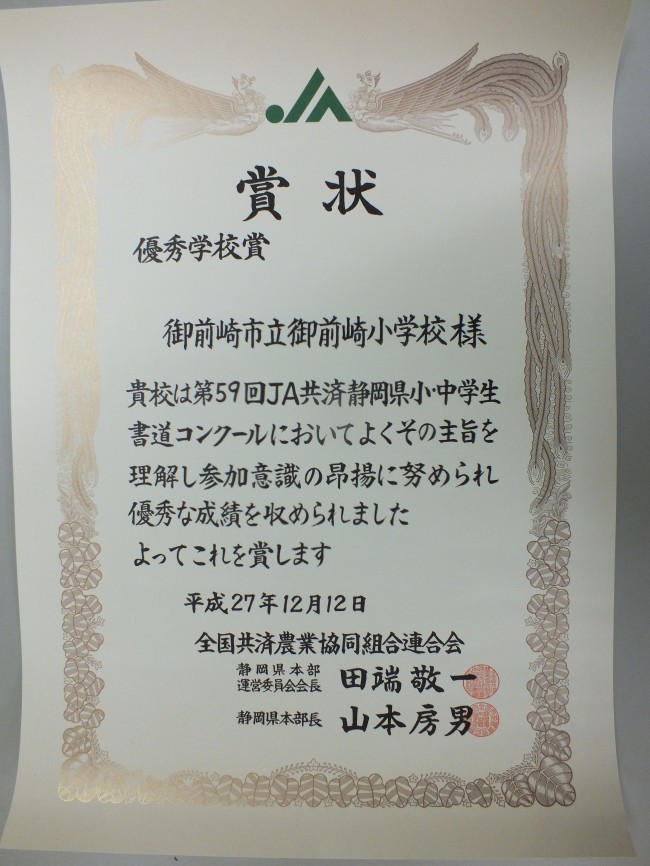 JA
賞状
優秀学校賞
御前崎市立御前崎小学校様
貴校は第59回JA共済静岡県小・中学生
書道コンクールにおいてよくその主旨を
理解し参加意識の昂揚に努められ
優秀な成績を収められました
よってこれを賞します
平成27年12月12日
全国共済農業協同組合連合会
静岡県本部
運営委員会会長 田端敬一
静岡県本部長 山本房男